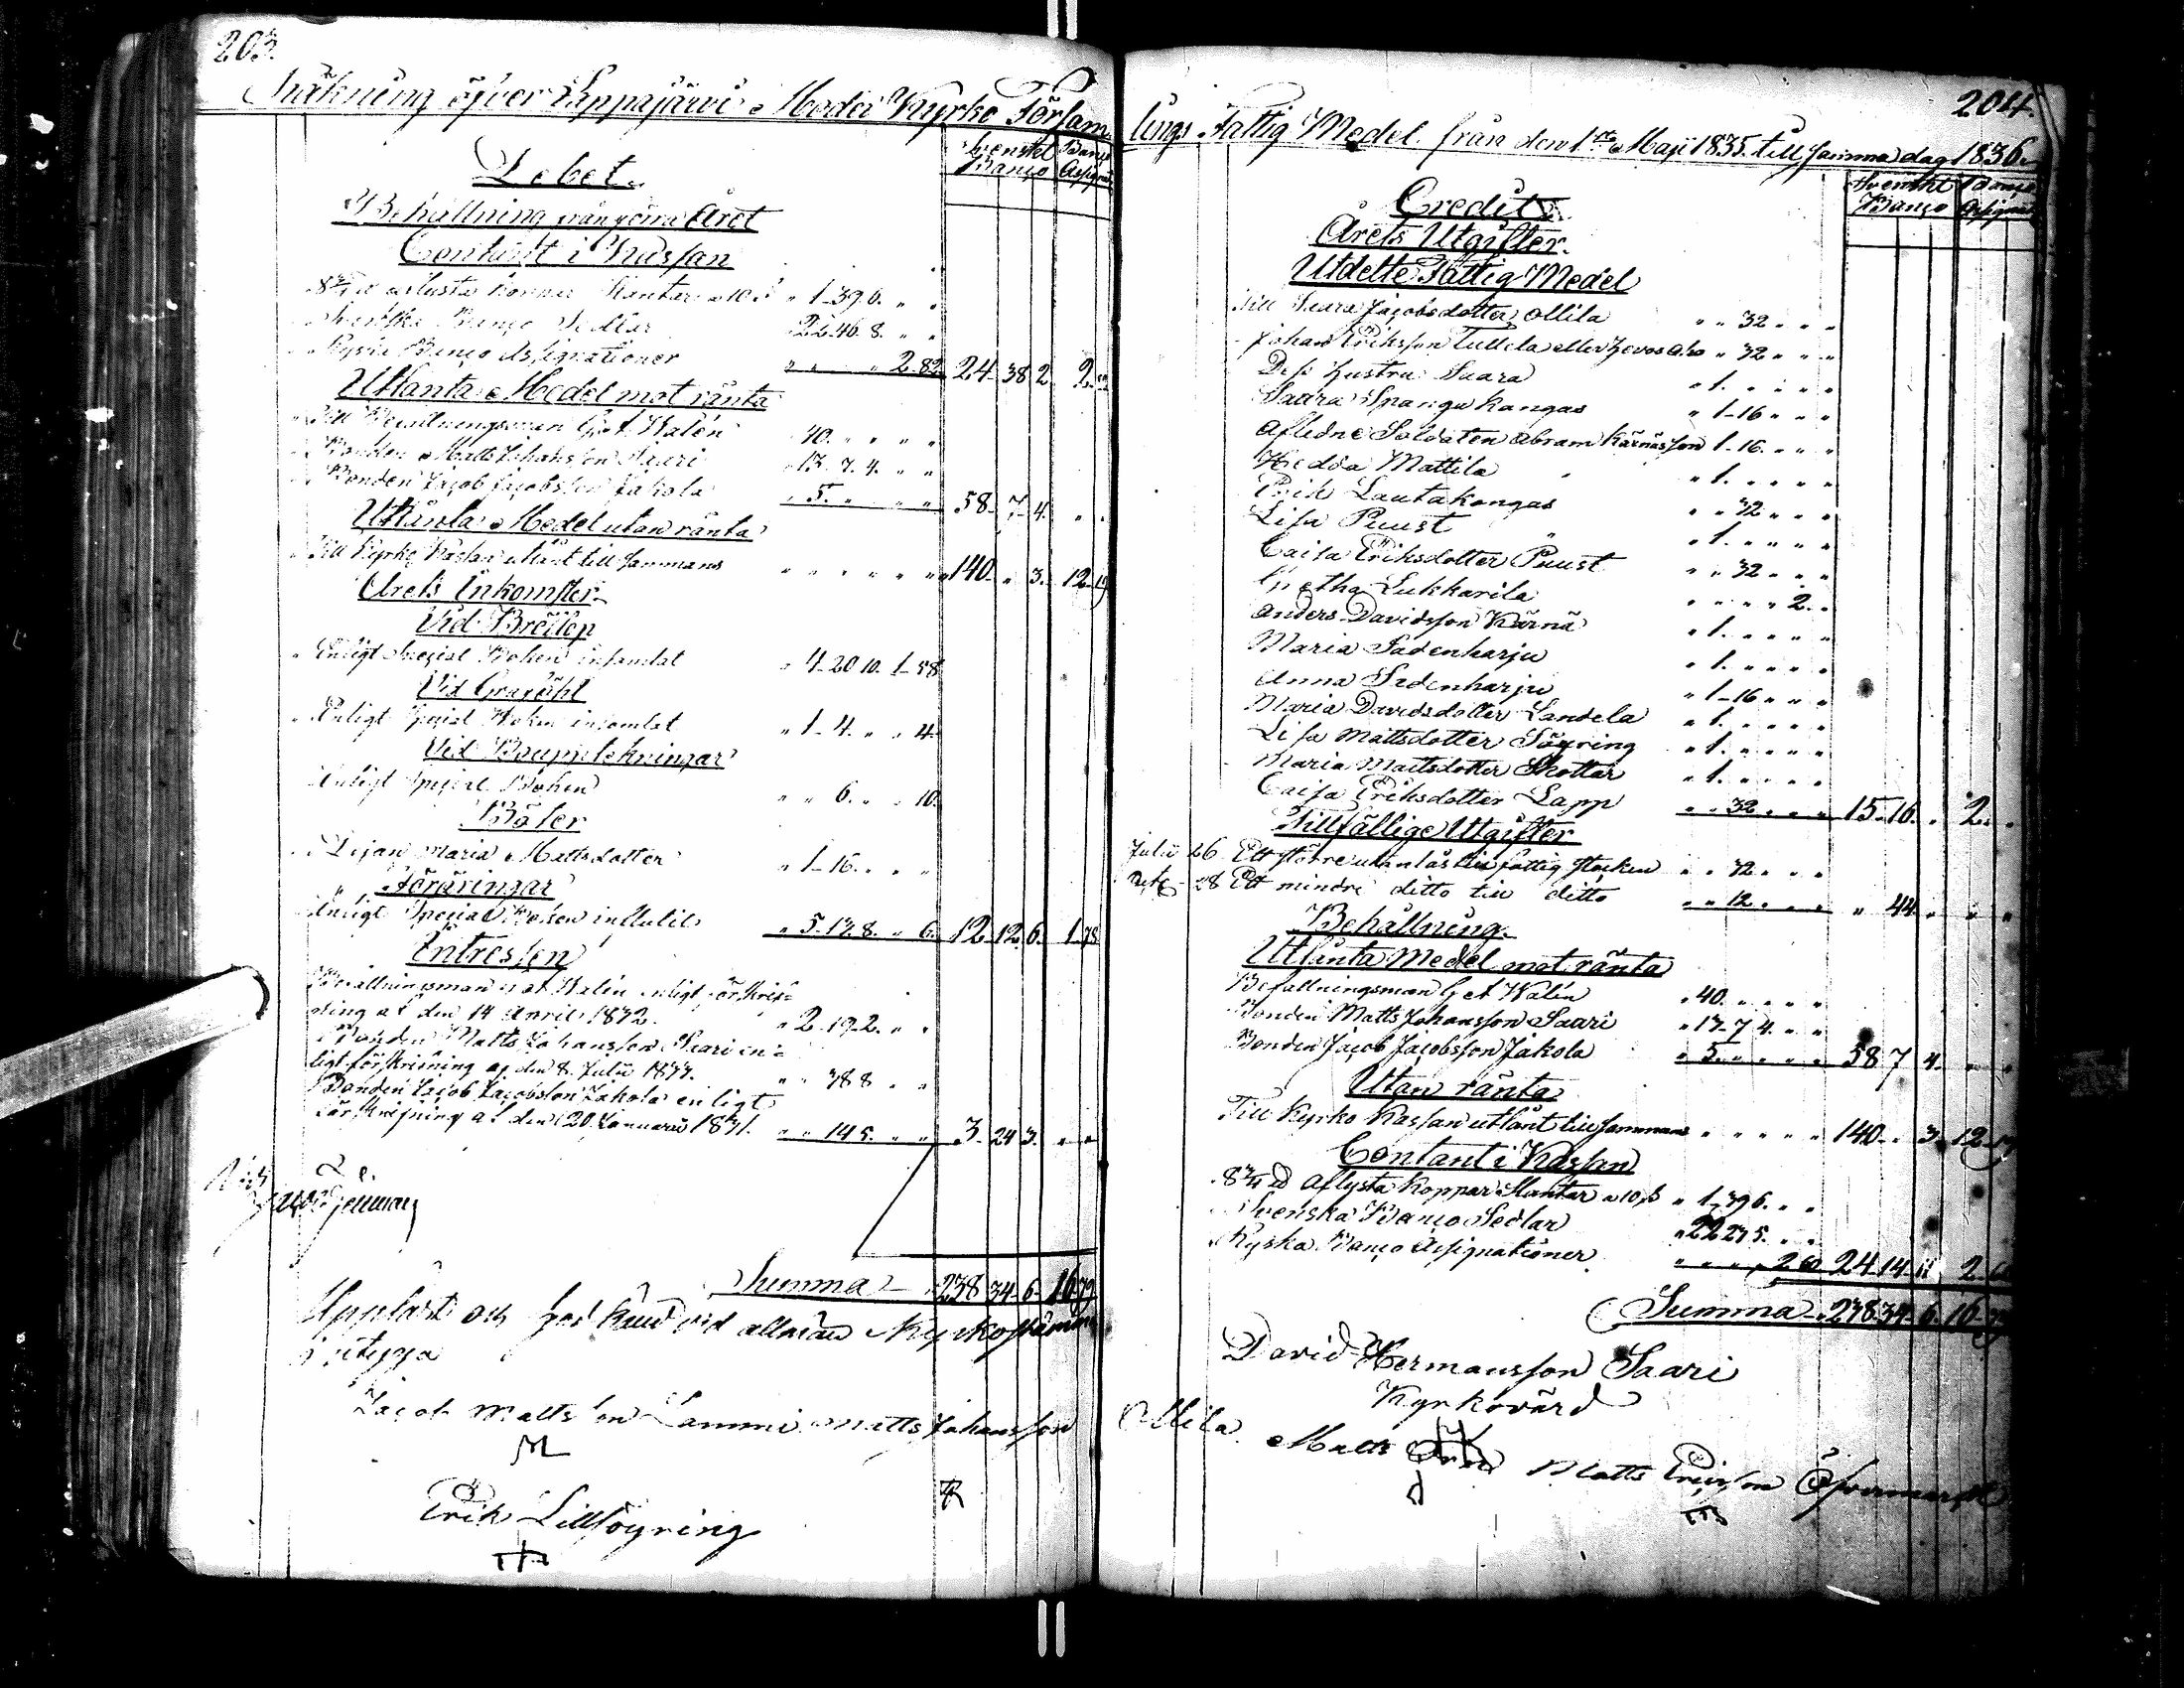 203.
Räkning öfver Lappajärvi Moder Kyrko Församlings Fattig Medel från den 1sta Maji 1835 till samma dag 1836.
Debet.
Svenskt Banço
Banço Assignat
Behållning från förra Året
Contant i Kassan
8¾ ℔ aflysta Koppar Slantar a 10 ß " 1-39.6. " "
Svenska Banço Sedlar 22.46.8. " "
Ryska Banço Assignationer " " " 2-82 24-38 2. 2-82
Utlånta Medel mot ränta
Till Befallningsman Walén 40. " " " "
Bonden Matts Johansson Saari 13.7.4. " "
Bonden Jacob Jacobsson Jakola " 5. " " " " 58-7-4. " "
Utlånta Medel utan ränta
Till Kyrko Kassan utlånt till sammans " " " " " " 140- " 3. 12-19
Årets Inkomster
Vid Bröllop
Enligt Special Boken insamlat " 4-20 10. 1-58
Vid Graföhl
Enligt Special Boken insamlat " 1-4. " " 4.
Vid Bouptekningar
Enligt Special Boken " " 6. " " 10.
Böter
Pigan Maria Mattsdotter " 1-16. " " "
Föräringar
Enligt Special Boken influtit " 5-13.8. " 6. 12 12 6. 1-78
Intressen
Befallningsman Walén enligt förskrif-
ning af den 14 April 1832. " 2-19.2. " "
Bonden Matts Johansson Saari en-
ligt förskrifning af den 8. Julii 1833. " " 38 8 " "
Bonden Jacob Jacobsson Jakola enligt
förskrifning af den 20 Januarii 1831. " " 14 5. " " 3 24 3. " "
Summa 238 34-6. 16-79
Uppläst och god känd vid allmän Kyrkostämma
Jacob Mattsson Lammi Matts Johansson
Erik Lillsöyring
204.
Credit
Svenskt Banço
Banço Assignat
Årets Utgifter.
Utdelte Fattig Medel
Till Saara Jacobsdotter Ollila " " 32 " " "
Johan Eriksson Tullila eller " " 32 " " "
Dess hustru Saara " 1. " " " "
Saara Spangu kangas " 1-16 " " "
Afledne Soldaten Abram Kärnässon 1-16. " " "
Hedda Mattila " 1. " " " "
Erik Lautakangas " " 32 " " "
Lisa Puust " 1. " " " "
Caisa Eriksdotter Puust " " 32 " " "
Gretha Lukkarila " " " " 2. "
Anders Davidsson Kärnä " 1. " " " "
Maria Sadenharju " 1. " " " "
Anna Sadenharju " 1-16 " " "
Maria Davidsdotter Landela " 1. " " " "
Lisa Mattsdotter Söyring " 1. " " " "
Maria Mattsdotter Skottar " 1. " " " "
Caisa Eriksdotter Lapp " " 32 " " " 15-16. " 2. "
Tillfällige Utgifter
Julii 26 Ett större utan lås till fattig stocken " " 32 " " "
28 Ett mindre ditto till ditto " " 12 " " " " 44 " " "
Behållning.
Utlånta Medel mot ränta
Befallningsman Walén " 40. " " " "
Bonden Matts Johansson Saari " 13-7 4. " "
Bonden Jacob Jacobsson Jakola " 5. " " " " 58 7 4. " "
Utan ränta
Till Kyrko Kassan utlånt till sammans " " " " " 140 " 3. 12-19
Contant i Kassan
8¾ ℔ Aflysta Koppar Slantar a 10 ß " 1-39 6. " "
Svenska Banço Sedlar " 22 23 5. " "
Ryska Banço Assignationer " " " " 2 60 24 14 11 2-60
Summa 238 34-6. 16-79
David Hermansson Saari
Kyrkovärd
Ollila
Matts
Matts Ericsson Öfvermark